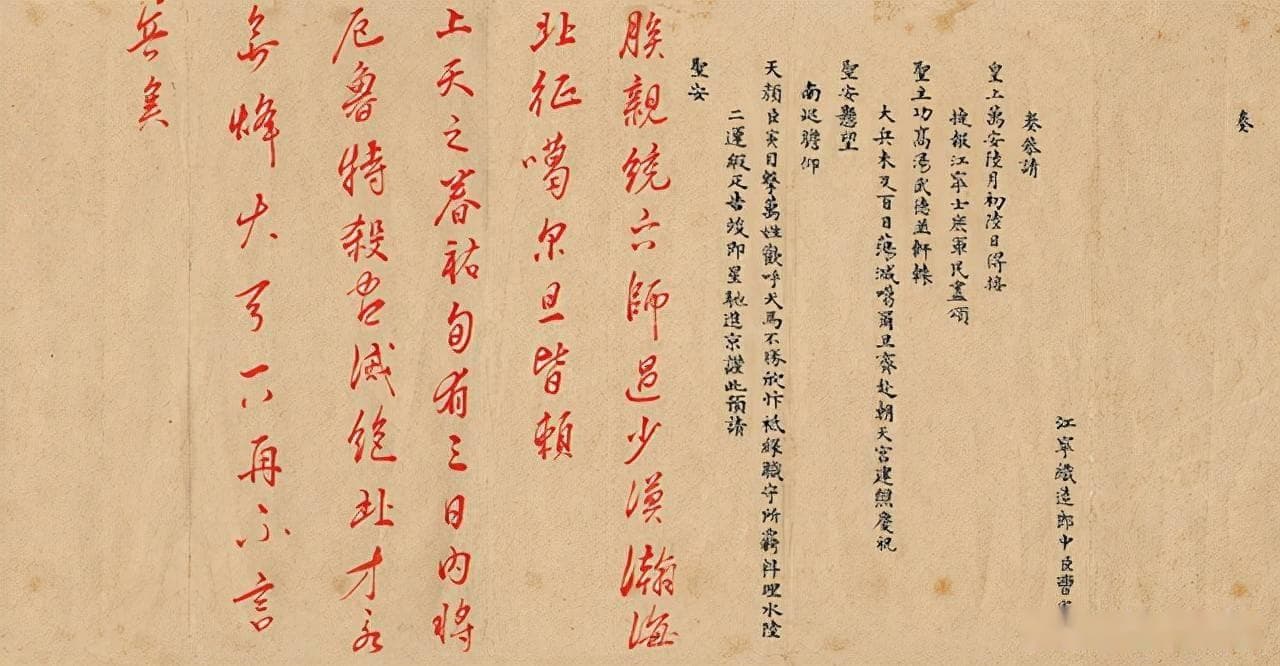 奏
江寧織造郎中臣曹
奏恭請
皇上萬安陸月初陸日得接
捷報江寧士庶軍民盡頌
聖主功高湯武德並軒轅
大兵未及百日蕩滅噶爾旦齊赴朝天宮建醮慶祝
聖安懸望
南巡瞻仰
天顏臣寅目擊萬姓歡呼犬馬不勝欣忭祗緣職守所羈料理水陸
二運緞疋告竣即星馳進京謹此預請
聖安
朕親統六師過少漠瀚海
北征噶尔旦皆賴
上天之眷祐旬有三日內將
厄魯特殺尽滅絕北方永
無烽火了下再不言
兵矣